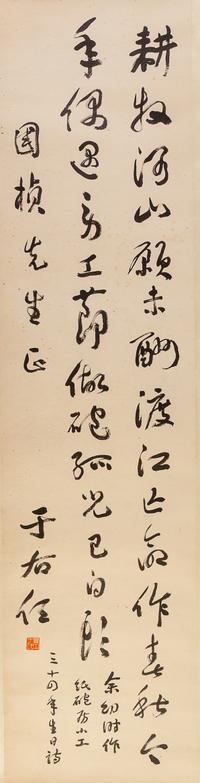 耕牧河山願未酬渡江亡命作春秋今
年偶遇勞工節做砲孤兒已白頭
余幼時作
紙砲房小工
三十四年生日詩
國楨先生正
于右任